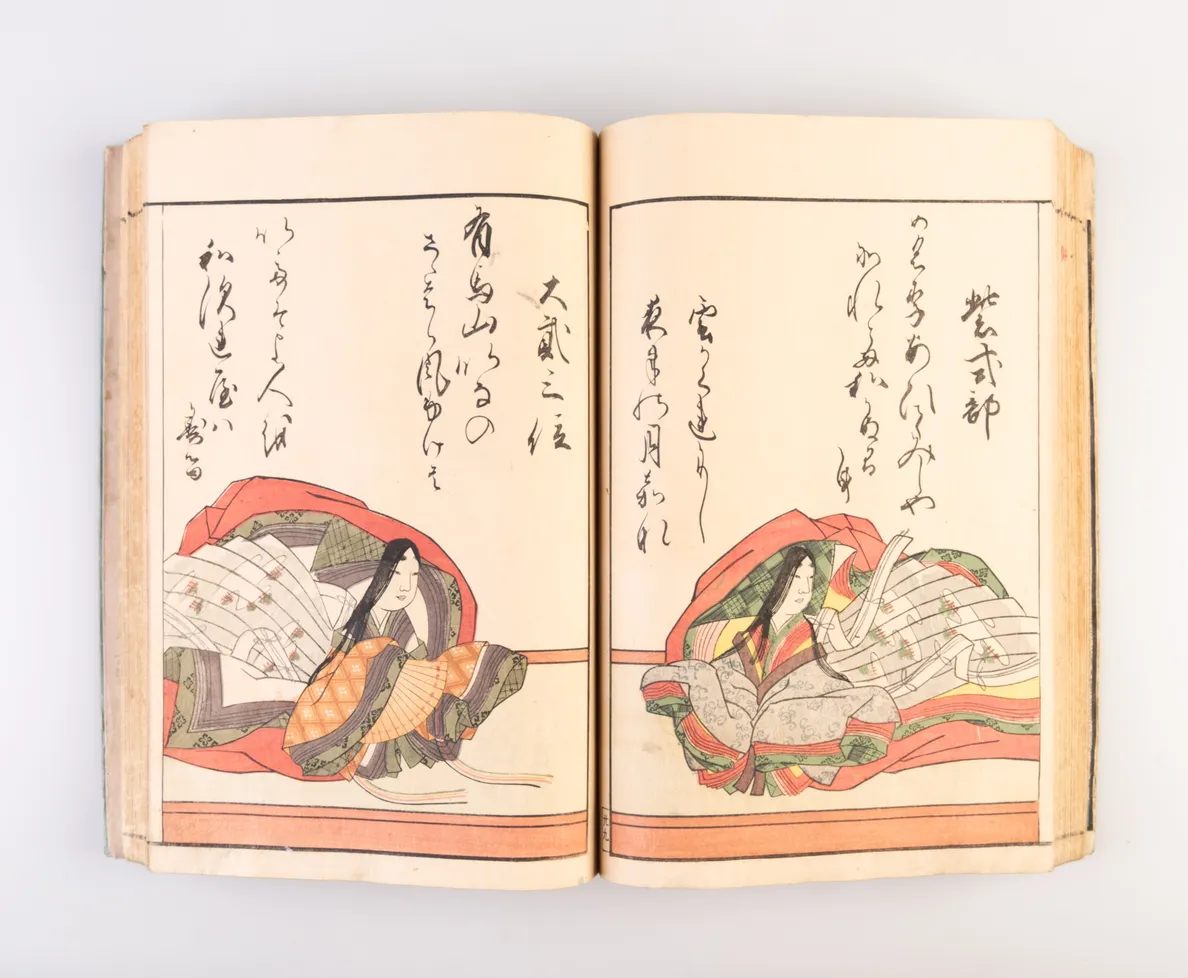 紫式部
めくりあひてみしや
それともわかぬまに
雲かくれにし
夜半の月かな
大貳三位
有馬山ゐなの
さゝはら風ふけは
いてそよ人を
和須連屋ハする